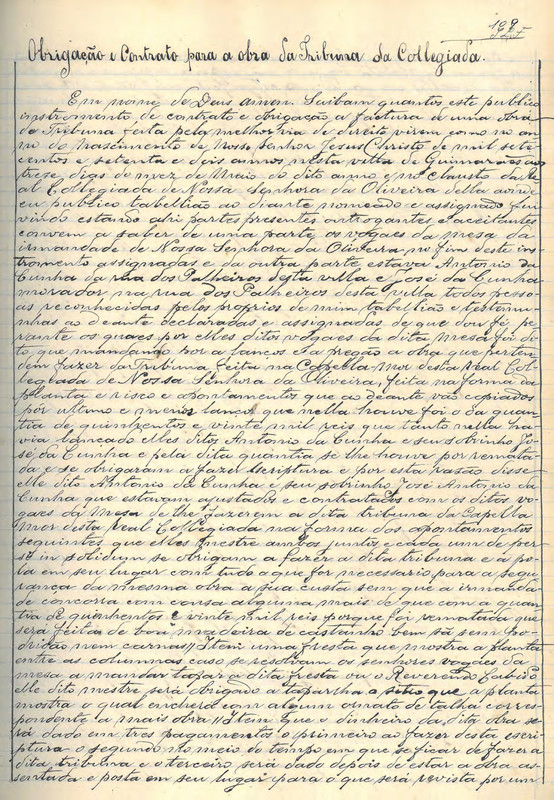 109
Obrigação e Contrato para a obra da Tribuna da Collegiada.
Em nome de Deus amen. Saibam quantos este publico
instromento de contrato e obrigação a factura de uma obra
de Tribuna feita pela melhor via de direito virem como no an-
no do Nascimento de Nosso Senhor Jesus Christo de mil sete
centos e setenta e dois annos nesta villa de Guimarães aos
treze dias do mez de Maio do dito anno e no claustro da Re-
al Collegiada de Nossa Senhora da Oliveira della aonde
eu publico tabellião ao diante nomeado e assignado fui
vindo estando ahi partes presentes outrogantes e aceitantes
convem a saber de uma parte os vogaes da mesa da
irmandade de Nossa Senhora da Oliveira no fim deste ins-
tromento assignadas e da outra parte estava Antonio da
Cunha da rua dos Palheiros desta villa e José da Cunha
morador na rua dos Palheiros desta villa todos pesso-
as reconhecidas pelos proprios de mim tabellião e testemu-
nhas ao deante declaradas e assignadas de que dou fé pe-
rante os quaes por elles ditos vogaes da dita mesa foi di-
to que mandando por a lanços e a pregão a obra que perten-
dem fazer da Tribuna feita na Capella-Mor desta Real Col-
legiada de Nossa Senhora da Oliveira, feita na forma da
planta e risco e apontamentos que ao deante vão copiados
por ultimo e menor lanço que nella houve foi o da quan-
tia de quinhentos e vinte mil reis que tanto nella ha-
via lançado elles ditos Antonio da Cunha e seu sobrinho Jo-
sé da Cunha e pela dita quantia se lhe houve por remata-
da e se obrigaram a fazer escriptura e por esta razão disse
elle dito Antonio da Cunha e seu sobrinho José Antonio da
Cunha que estavam ajustados e contratados com os ditos vo-
gaes da Mesa de lhe fazerem a dita tribuna da Capella
Mor desta Real Collegiada na forma dos apontamentos
seguintes que elles mestre ambos juntos e cada um de per
si in solidum se obrigam a fazer a dita tribuna e a po-
la em seu lugar com tudo o que for necessario para a segu-
rança da mesma obra a sua custa sem que a irmanda-
de concorra com cousa alguma mais de que com a quan-
tia de quinhentos e vinte mil reis porque foi rematada que
será feitas de boa madeira de castanho bem sã sem po-
dridão nem carnas // Item uma fresta que mostra a planta
entre as columnas caso se resolvam os senhores vogaes da
mesa a mandar tapar a dita fresta ou o Reverendo Cabido
elle dito mestre será obrigado a tapar-lha o sitio que a planta
mostra o qual encherá com algum ornato de talha corres-
pondente a mais obra // Item que o dinheiro da dita obra se-
rá dado em trez pagamentos o primeiro ao fazer desta escri-
ptura o segundo no meio do tempo em que se ficar de fazer a
dita tribuna e o terceiro será dado depois de estar a obra as-
sentada e posta em seu lugar para o que será revista por um